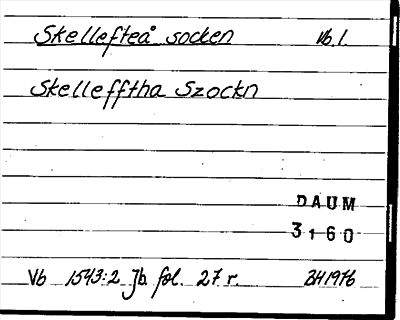 Skellefteå socken Vb.l.
Skellefftha Szockn
DAUM
3160
Vb 1543:2 Jb. fol. 27 r. BH1976